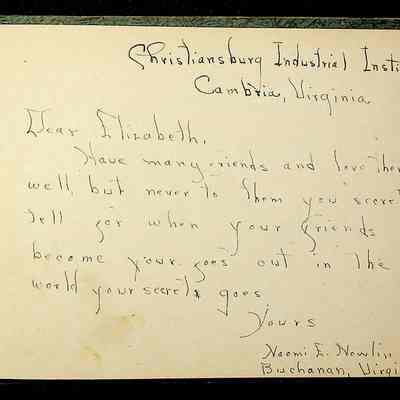 Christiansburg Industrial Insti
Cambria, Virginia
Dear Elizabeth,
Have many friends and love them
well, but never to them you secret
tell for when your friends
become your foes out in the
world your secrets goes
Yours
Naomi E. Newlin
Buchanan, Virgi